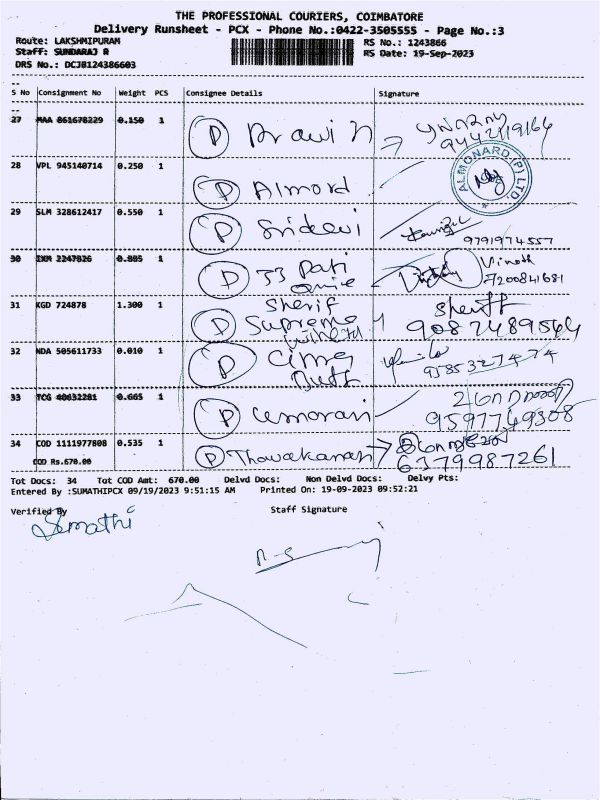 THE PROFESSIONAL COURIERS, COIMBATORE
Delivery Runsheet - PCX - Phone No.:0422-3505555 - Page No.:3
Route: LAKSHMIPURAM
Staff: SUNDARAJ R
DRS No.: DCJB124386603
RS No.: 1243866
RS Date: 19-Sep-2023
S No Consignment No Weight PCS Consignee Details Signature
27 MAA 861678229 0.150 1 D
9442119164
28 VPL 945140714 0.250 1 D Almord
ALMONARD (P) LTD.
29 SLM 328612417 0.550 1 D Sridevi
9791974557
30 IXM 2247826 0.885 1 D 33 Pati Vinoth
7200841681
31 KGD 724878 1.300 1 D Sherif Supreme Sheriff
9087489564
32 NDA 505611733 0.010 1 D
9585327474
33 TCG 40632281 0.665 1 D
9597749308
34 COD 1111977808 0.535 1 D
COD Rs.670.00
6379987261
Tot Docs: 34 Tot COD Amt: 670.00 Delvd Docs: Non Delvd Docs: Delvy Pts:
Entered By :SUMATHIPCX 09/19/2023 9:51:15 AM Printed On: 19-09-2023 09:52:21
Verified By Staff Signature
Sumathi